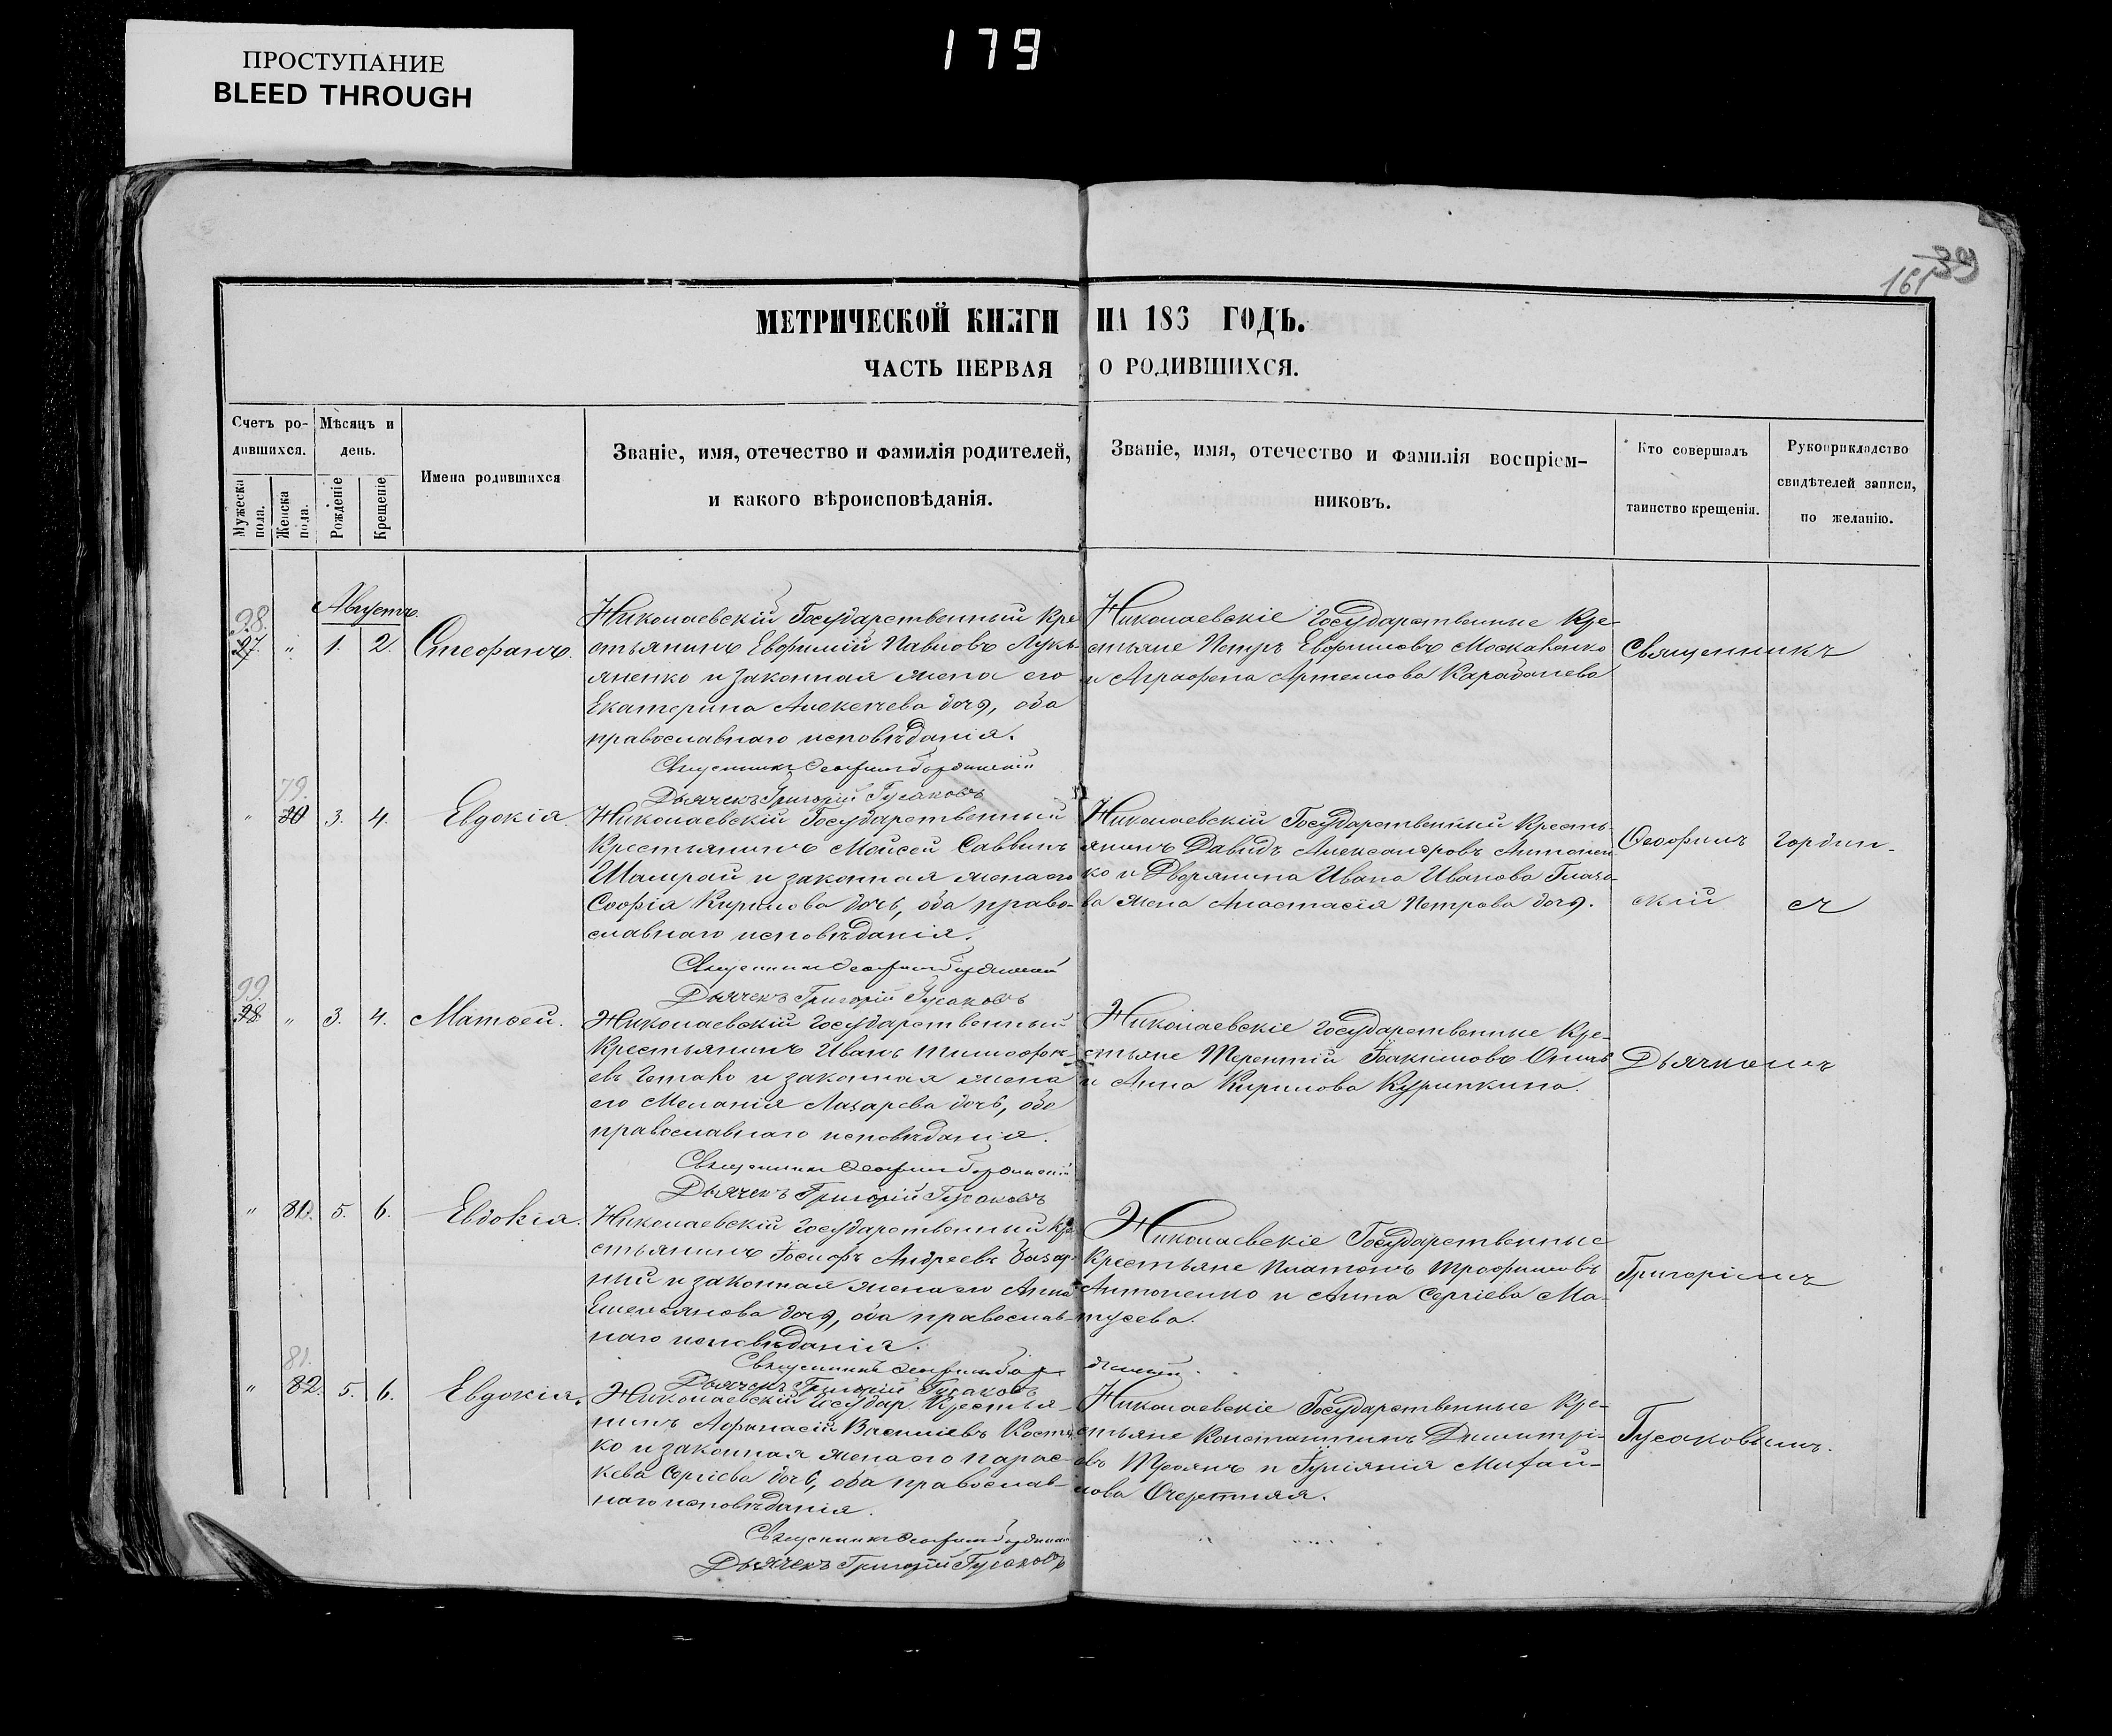 ПРОСТУПАНИЕ
BLEED THROUGH
179
39
161
МЕТРИЧЕСКОЙ КНИГИ НА 186 ГОДЪ.
ЧАСТЬ ПЕРВАЯ О РОДИВШИХСЯ.
Счетъ ро-
дившихся.
Мужеска пола.
Женска пола.
Мѣсяцъ и
день.
Рожденіе
Крещеніе
Имена родившихся
Званіе, имя, отечество и фамилія родителей,
и какого вѣроисповѣданія.
Званіе, имя, отечество и фамилія воспріем-
никовъ.
Кто совершалъ
таинство крещенія.
Рукоприкладство
свидѣтелей записи,
по желанію.
Августъ.
98.
97. " 1. 2. Стефанъ.
Николаевскій Государственный Кре
стьянинъ Евфимій Павловъ Лукь-
яненко и законная жена его
Екатерина Алексѣева дочь, оба
православнаго исповѣданія.
Священникъ Ѳеофилъ Гординскій
Дьячекъ Григорій Гусаковъ
Николаевскіе Государственные Кре-
стьяне Петръ Евфимовъ Москаленко
и Аграфена Артемова
Священникъ
79.
" 80 3. 4. Евдокія.
Николаевскій Государственный
Крестьянинъ Моисей Саввинъ
Шамрай и законная жена его
Софія Кирилова дочь, оба право-
славнаго исповѣданія.
Священникъ Ѳеофилъ Гординскій
Дьячекъ Григорій Гусаковъ
Николаевскій Государственный Кресть-
янинъ Давидъ Александровъ Антонен
ко и Дворянина Ивана Иванова
жена Анастасія Петрова дочь.
Ѳеофилъ Гордин-
скій
99.
98 " 3. 4. Матѳей.
Николаевскій Государственный
Крестьянинъ Иванъ Тимофѣе-
евъ и законная жена
его Меланія Лазарева дочь, оба
православнаго исповѣданія.
Священникъ Ѳеофилъ Гординскій
Дьячекъ Григорій Гусаковъ
Николаевскіе Государственные Кре-
стьяне Терентій Іоакимовъ
и Анна Кирилова Курипкина.
Дьячкомъ
" 80. 5. 6. Евдокія.
Николаевскій Государственный Кре
стьянинъ Іосифъ Андреевъ Базар-
ный и законная жена его Анна
Емельянова дочь, оба православ-
наго исповѣданія.
Священникъ Ѳеофилъ Гординскій.
Дьячекъ Григорій Гусаковъ
Николаевскіе Государственные
Крестьяне Платонъ Трофимовъ
Антоненко и Анна Сергіева Ма-
тусева.
Григоріемъ
81.
" 82. 5. 6. Евдокія.
Николаевскій Государ. Крестья-
нинъ Афанасій Василіевъ Костен
ко и законная жена его Парас-
кева Сергіева дочь, оба православ-
наго исповѣданія.
Священникъ Ѳеофилъ Гординскій
Дьячекъ Григорій Гусаковъ
Николаевскіе Государственные Кре-
стьяне Константинъ Димитрі-
евъ Троянъ и Іуліанія Михай-
лова Очеретняя.
Гусаковымъ.